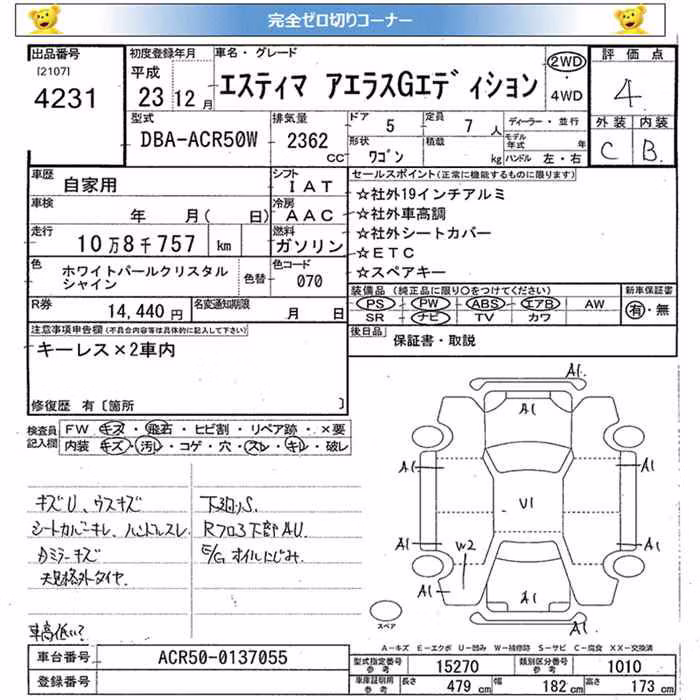 完全ゼロ切りコーナー
出品番号 [2107] 4231
初度登録年月 平成 23年 12月
車名・グレード エスティマ アエラスGエディション
2WD・4WD
評価点 4
外装 C 内装 B
型式 DBA-ACR50W
排気量 2362 CC
ドア 5 定員 7 人
形状 ワゴン 積載 kg
ディーラー・並行
モデル年式 年
ハンドル 左・右
車歴 自家用
シフト IAT
車検 年 月( 日)
冷房 AAC
走行 10万8千757 km
燃料 ガソリン
色 ホワイトパールクリスタルシャイン 色替
色コード 070
R券 14,440 円
名変通知期限 月 日
セールスポイント(正常に機能するものに限ります)
☆社外19インチアルミ
☆社外車高調
☆社外シートカバー
☆ETC
☆スペアキー
装備品 (純正品に限り〇をつけてください)
PS・PW・ABS・エアB・AW
SR・ナビ・TV・カワ
新車保証書 有・無
後日品 保証書・取説
注意事項申告欄(不具合内容等は具体的に記入して下さい)
キーレス×2車内
修復歴 有〔箇所 〕
検査員記入欄
FW キズ・飛石・ヒビ割・リペア跡・×要
内装 キズ・汚レ・コゲ・穴・スレ・キレ・破レ
キズU、ウスキズ
シートカバーキレ、ハンドルスレ
カミラーキズ
天規格外タイヤ
車高低い?
下廻りS
Rフロア下部AU
E/Gオイルにじみ
A1
A1
A1
A1
U1
A1
A1
W2
A1
A1
スペア
A-キズ E-エクボ U-凹み W-補修跡 S-サビ C-腐食 XX-交換済
車台番号 ACR50-0137055
登録番号
型式指定番号 参考 15270
類別区分番号 参考 1010
車庫証明用 参考 長さ 479 cm 幅 182 cm 高さ 173 cm